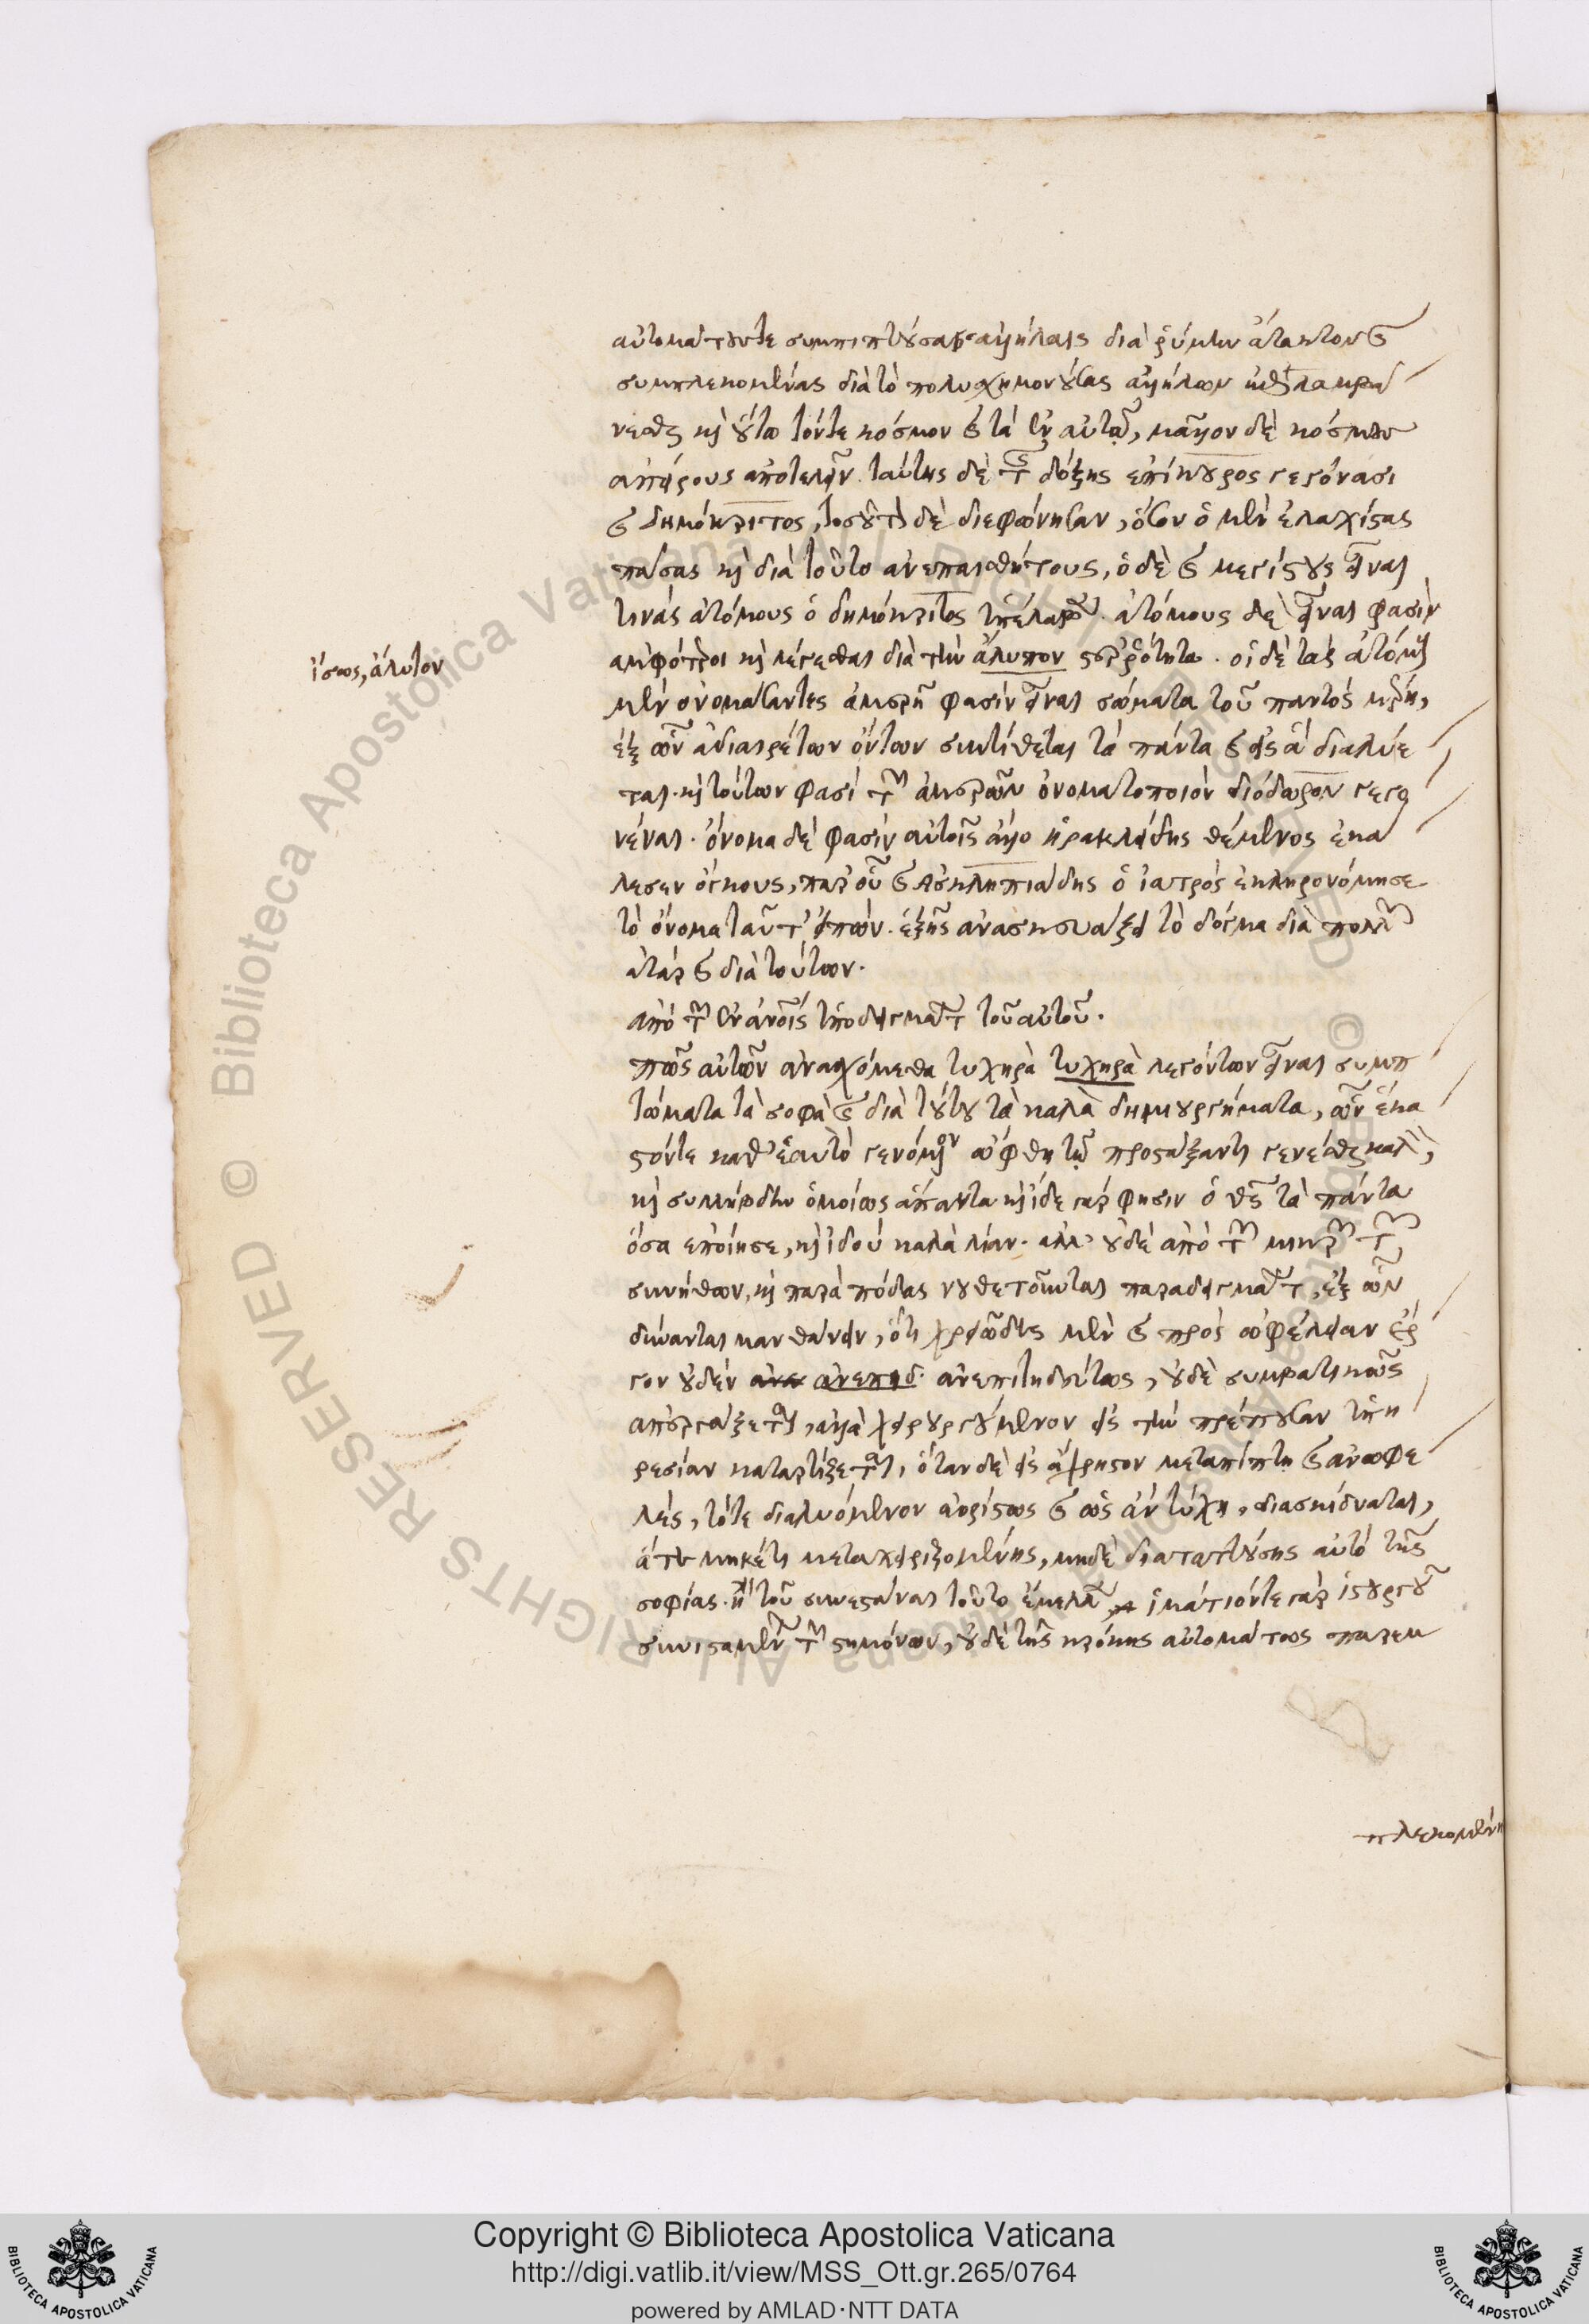 αὐτομάτους τε συμπιπτούσας ἀλλήλαις διὰ ῥύμην ἄτακτον καὶ
συμπλεκομένας διὰ τὸ πολυσχήμονας οὔσας ἀλλήλων ἐπιλαμβά
νεσθαι καὶ οὕτω τόν τε κόσμον καὶ τὰ ἐν αὐτῷ, μᾶλλον δὲ κόσμους
ἀπείρους ἀποτελεῖν. ταύτης δὲ τῆς δόξης ἐπίκουρος γεγόνασι
καὶ δημόκριτος, τοσοῦτον δὲ διεφώνησαν, ὅσον ὁ μὲν ἐλαχίστας
πάσας καὶ διὰ τοῦτο ἀνεπαισθήτους, ὁ δὲ καὶ μεγίστους εἶναι
τινὰς ἀτόμους ὁ δημόκριτος ὑπέλαβεν. ἀτόμους δὲ εἶναι φασὶν
ἀμφότεροι καὶ λέγεσθαι διὰ τὴν ἄλυπον στερρότητα. οἱ δὲ τὰς ἀτόμους
ἴσως, ἄλυτον
μὲν ὀνομάσαντες ἀμερῆ φασὶν εἶναι σώματα τοῦ παντὸς μέρη,
ἐξ ὧν ἀδιαιρέτων ὄντων συντίθεται τὰ πάντα καὶ εἰς ἃ διαλύε
ται. καὶ τούτων φασὶ τῶν ἀμερῶν ὀνοματοποιὸν διόδωρον γεγο
νέναι. ὄνομα δέ φασὶν αὐτοῖς ἄλλο ἡρακλείδης θέμενος ἐκά
λεσεν ὄγκους, παρ' οὗ καὶ ἀσκληπιάδης ὁ ἰατρὸς ἐκληρονόμησε
τὸ ὄνομα ταῦτ' εἰπών. ἑξῆς ἀνασκευάζει τὸ δόγμα διὰ πολλῶν
ἀτὰρ καὶ διὰ τούτων.
ἀπὸ τῶν ἐν ἀνοῖς ὑποδειγμάτων τοῦ αὐτοῦ.
πῶς αὐτῶν ἀνασχόμεθα τυχηρὰ τυχηρὰ λεγόντων εἶναι συμπ
τώματα τὰ σοφὰ καὶ διὰ τοῦτο τὰ καλὰ δημιουργήματα, ὧν ἕκα
στόν τε καθ' ἑαυτὸ γενόμενον ὤφθη τῷ προστάξαντι γενέσθαι καλόν,
καὶ συλλήβδην ὁμοίως ἅπαντα καὶ ἴδε γάρ φησιν ὁ θεὸς τὰ πάντα
ὅσα ἐποίησε, καὶ ἰδοὺ καλὰ λίαν. ἀλλ' οὐδὲ ἀπὸ τῶν μικρῶν τῶν
συνήθων, καὶ παρὰ πόδας νουθετοῦνται παραδειγμάτων, ἐξ ὧν
δύνανται μανθάνειν, ὅτι χρειῶδες μὲν καὶ πρὸς ὠφέλειαν ἔρ
γον οὐδὲν ανε ἀνεπιδ. ἀνεπιτηδεύτως, οὐδὲ συμβατικῶς
ἀπεργάζεται, ἀλλὰ χειρουργούμενον εἰς τὴν πρέπουσαν ὑπη
ρεσίαν καταρτίζεται, ὅταν δὲ εἰς ἄχρηστον μεταπίπτῃ καὶ ἀνωφε
λές, τότε διαλυόμενον ἀορίστως καὶ ὡς ἂν τύχῃ, διασκίδναται,
ἅτε μηκέτι μεταχειριζομένης, μηδὲ διαταττούσης αὐτὸ τῆς
σοφίας. ᾗ τοῦ συνεστάναι τοῦτο ἔμελεν, ἱμάτιόν τε γὰρ ἱστουργοῦ
συνισταμένων τῶν στημόνων, οὐδὲ τῆς κρόκης αὐτομάτως παρεμ
πλεκομένη